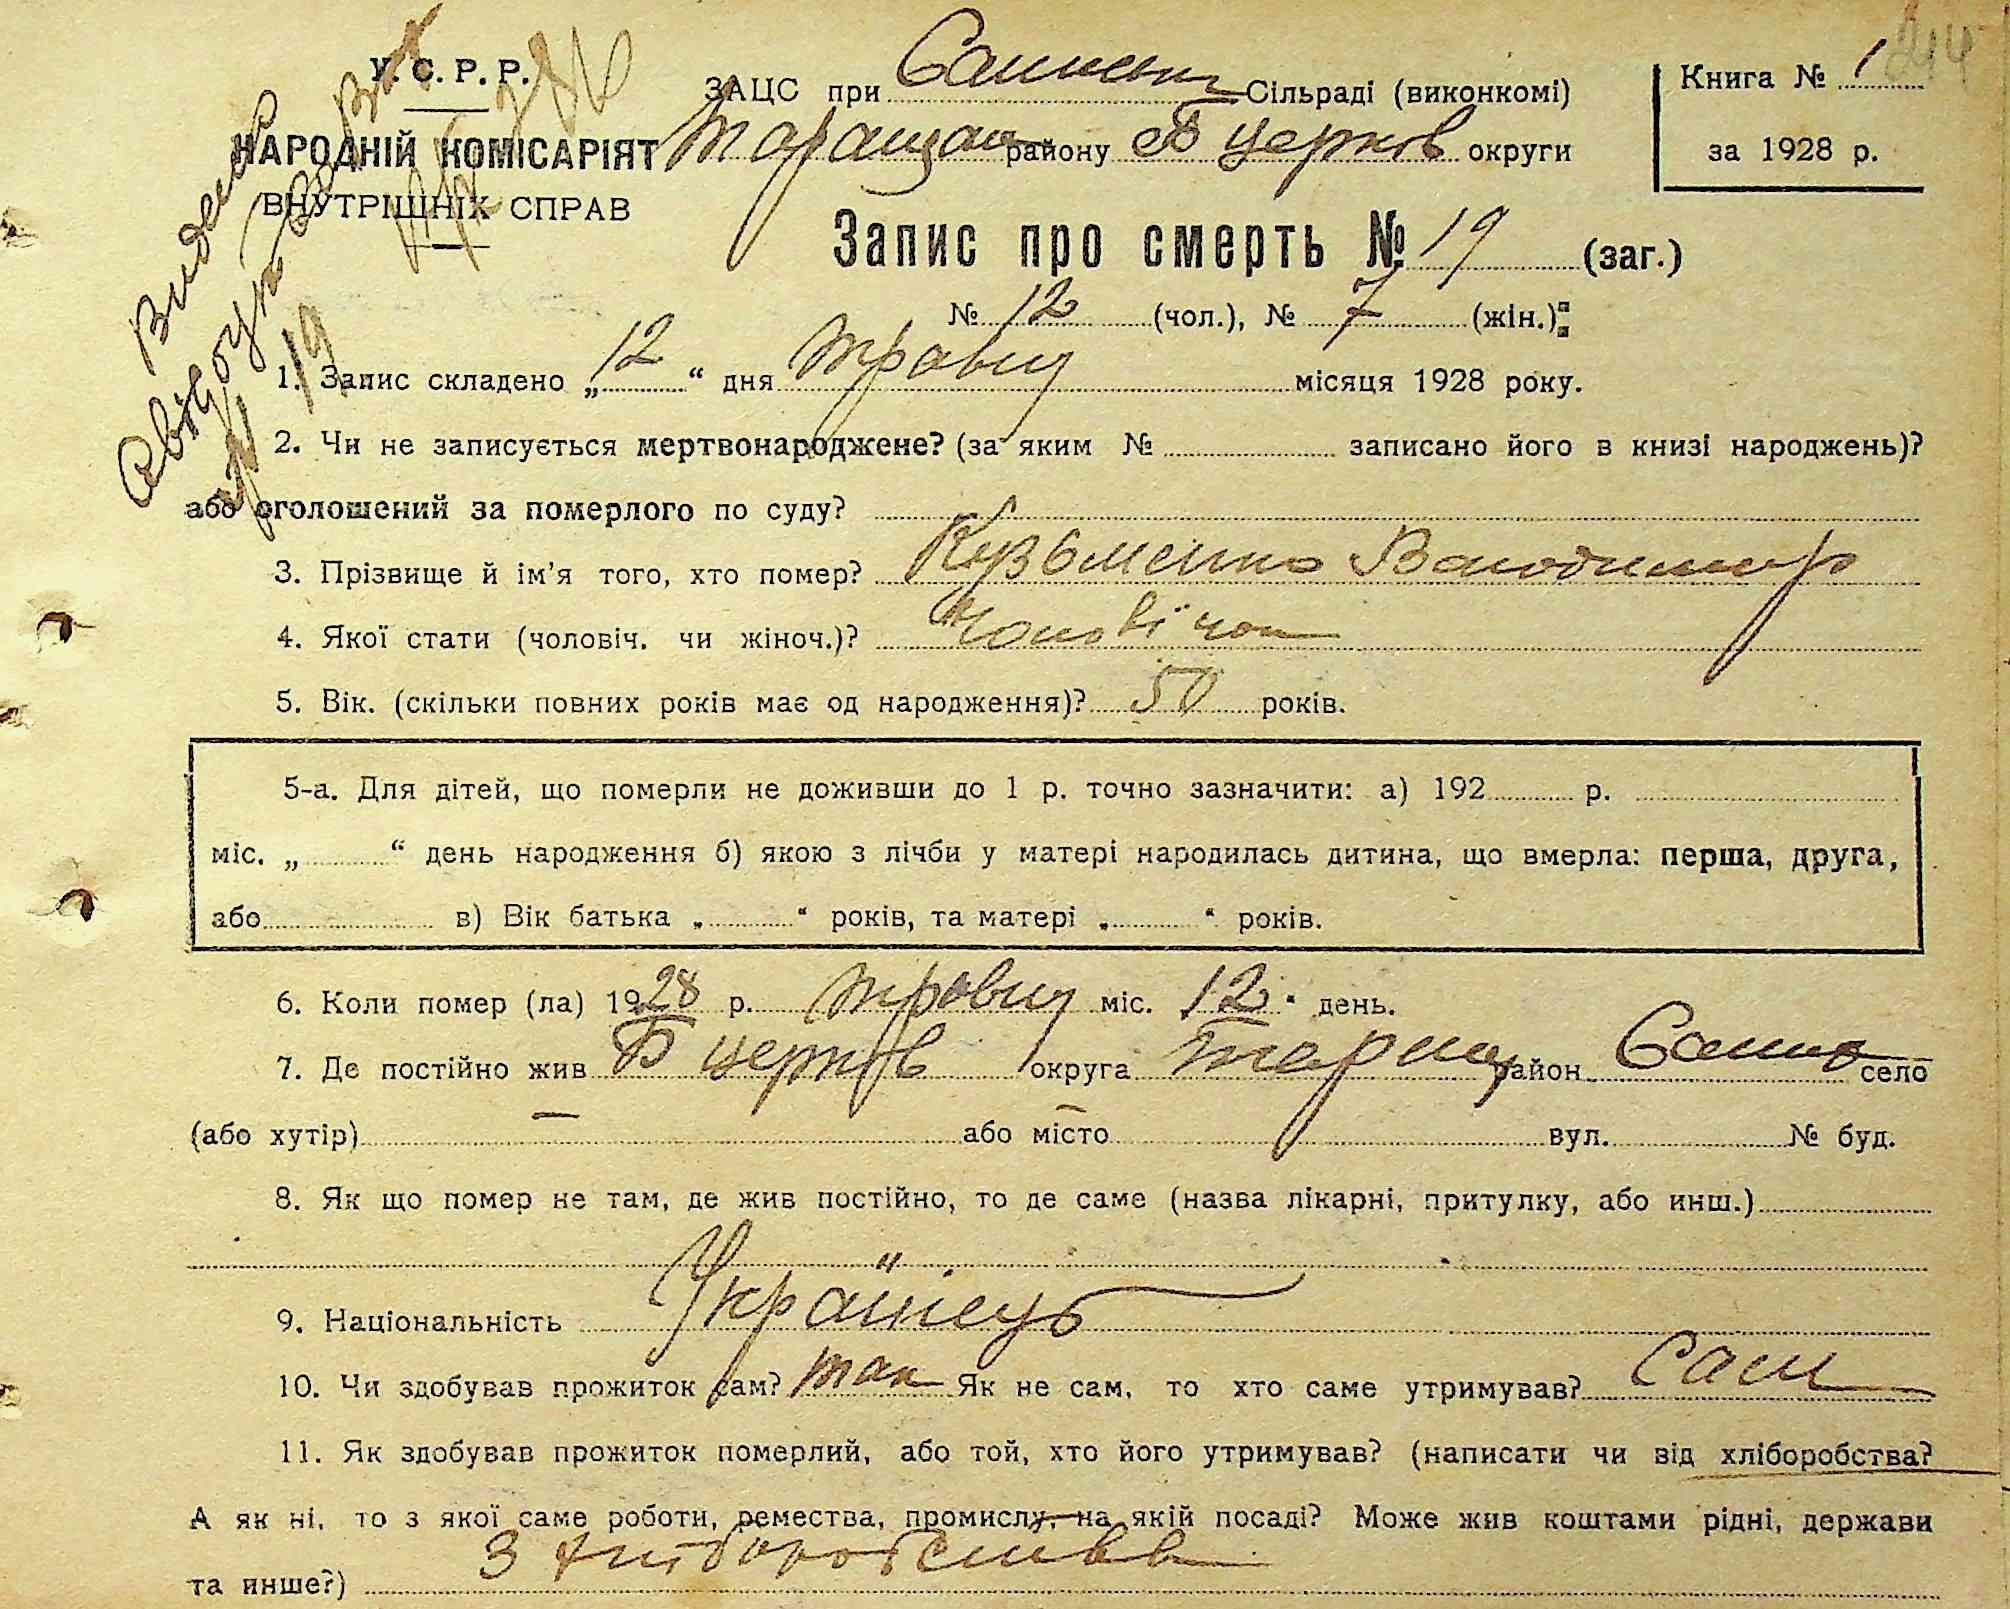 У. С. Р. Р.
НАРОДНІЙ КОМІСАРІЯТ
ВНУТРІШНІХ СПРАВ
Видено
ЗАЦС при Сільраді (виконкомі)
Таращан району Б Церков округи
Книга № 1
за 1928 р.
244
Запис про смерть № 19 (заг.)
№ 12 (чол.), № 7 (жін.):
1. Запис складено „12“ дня травня місяця 1928 року.
2. Чи не записується мертвонароджене? (за яким № записано його в книзі народжень)?
або оголошений за померлого по суду?
3. Прізвище й ім'я того, хто помер? Кузьменко Володимир
4. Якої стати (чоловіч. чи жіноч.)? Чоловічої
5. Вік. (скільки повних років має од народження)? 50 років.
5-а. Для дітей, що померли не доживши до 1 р. точно зазначити: а) 192 р.
міс. „ “ день народження б) якою з лічби у матері народилась дитина, що вмерла: перша, друга,
або в) Вік батька „ “ років, та матері „ “ років.
6. Коли помер (ла) 1928 р. травня міс. 12 “ день.
7. Де постійно жив Б Церков округа Таращ район село
(або хутір) — або місто — вул. № буд.
8. Як що помер не там, де жив постійно, то де саме (назва лікарні, притулку, або инш.)
9. Національність Українець
10. Чи здобував прожиток сам? так Як не сам, то хто саме утримував? Сам
11. Як здобував прожиток померлий, або той, хто його утримував? (написати чи від хліборобства?
А як ні, то з якої саме роботи, ремества, промислу, на якій посаді? Може жив коштами рідні, держави
та инше?) З хліборобства